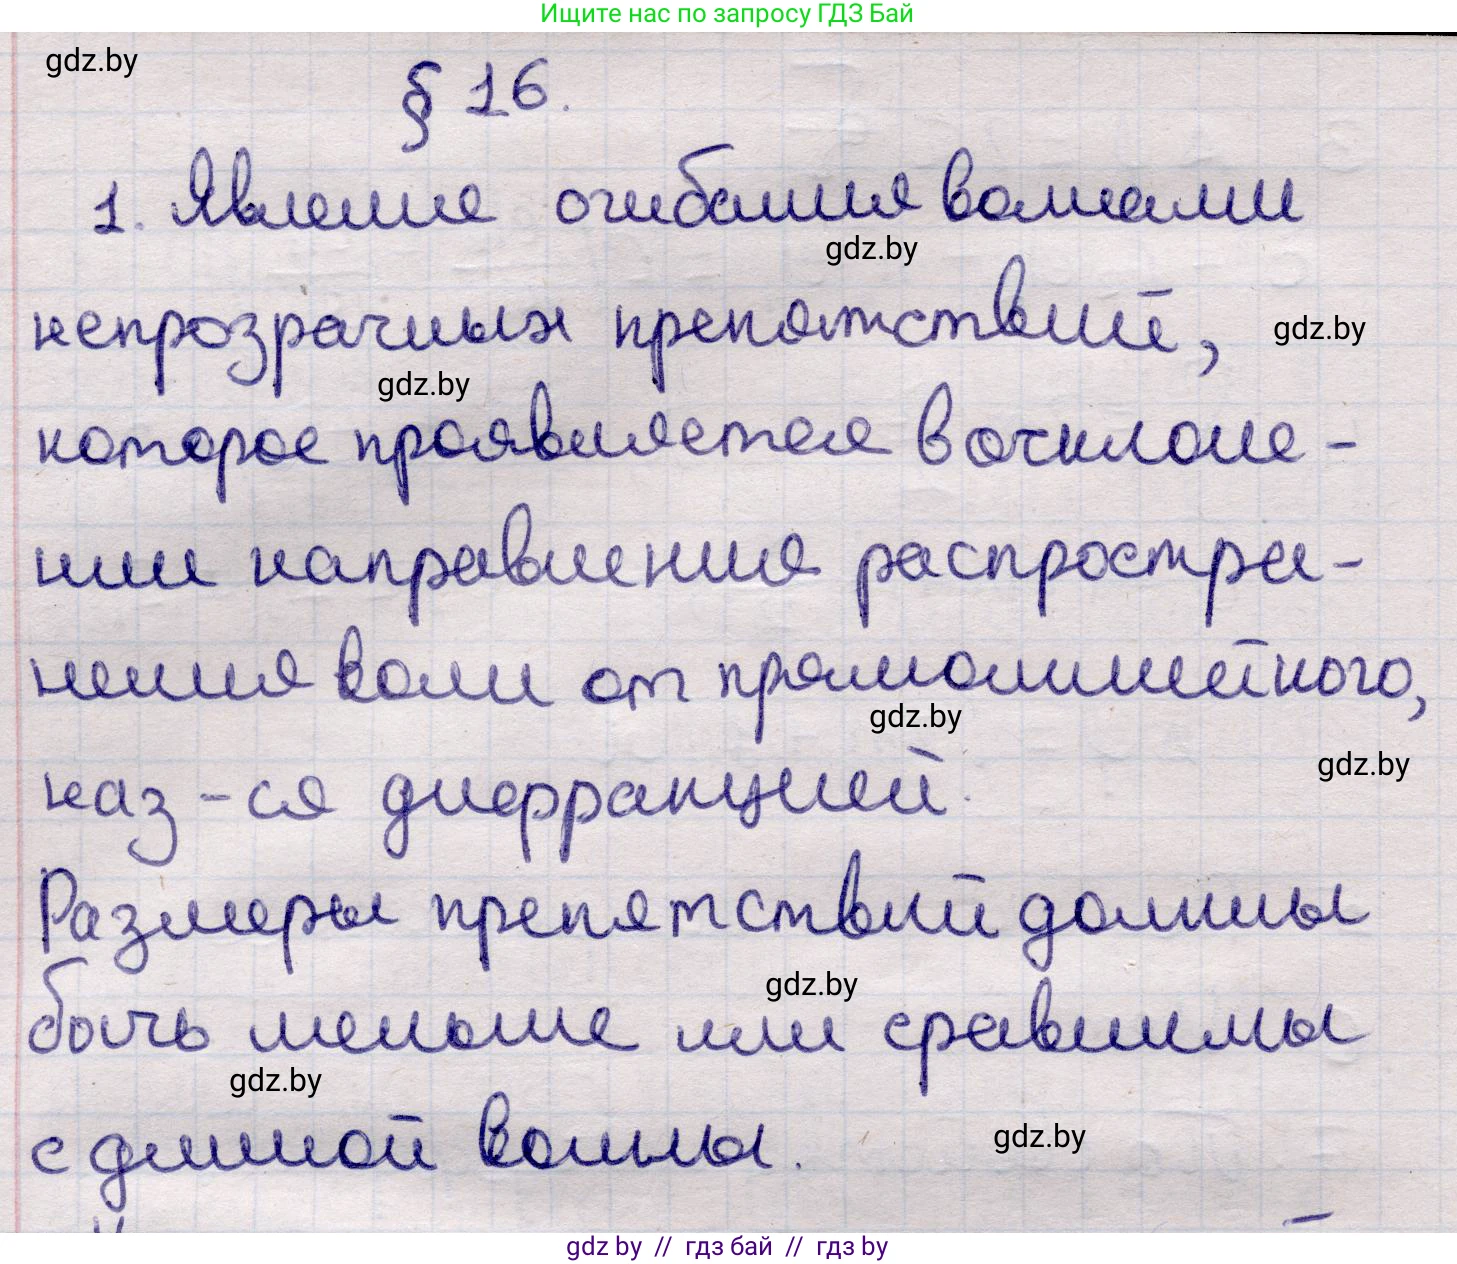 Ищите нас по запросу ГДЗ Бай
gdz.by
§ 16.
1. Явление огибания волнами
gdz.by
непрозрачных препятствий,
gdz.by
gdz.by
которое проявляется в отклоне-
нии направления распростра-
нения волн от прямолинейного,
gdz.by
gdz.by
наз-ся дифракцией.
Размеры препятствий должны
gdz.by
быть меньше или сравнимы
gdz.by
с длиной волны.
gdz.by
gdz by // гдз бай // гдз by